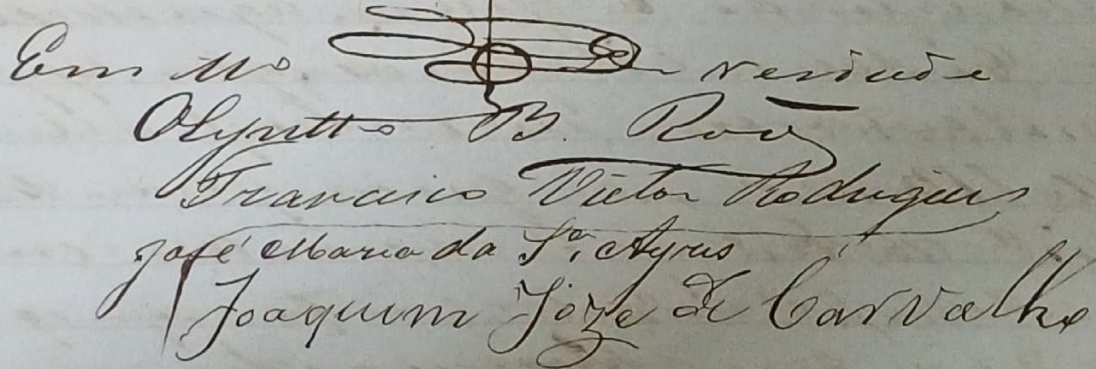 Em tt.º de verdade
Olyntho B. Roiz
Francisco Victor Rodrigues
José Maria da S.ª Ayres
Joaquim Joze de Carvalho